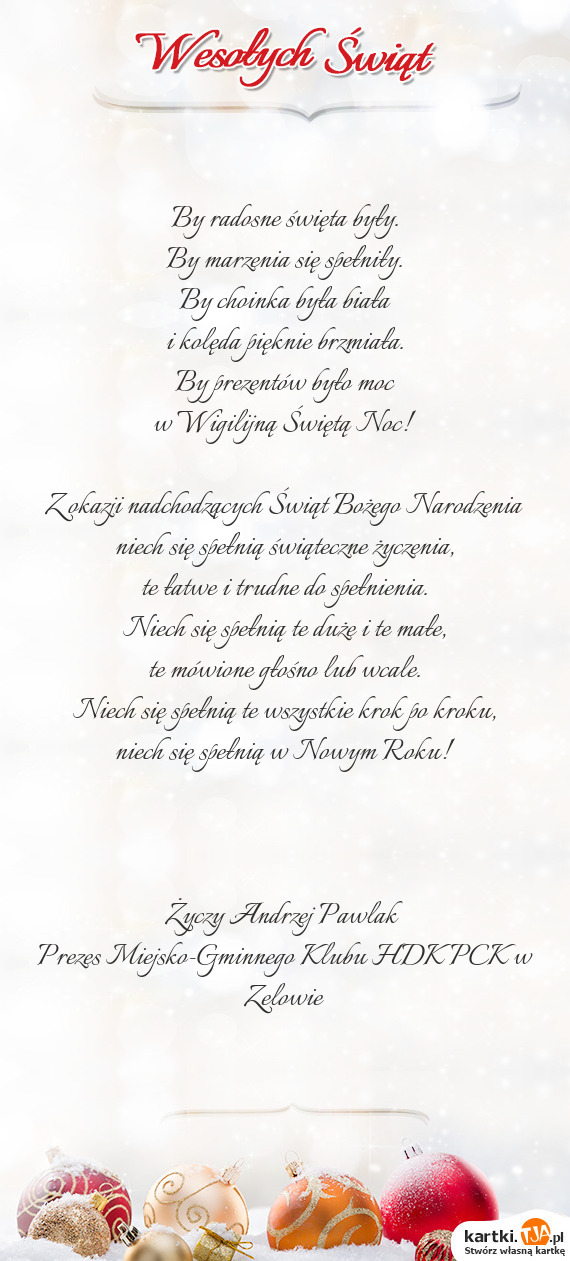 Wesołych Świąt
By radosne święta były.
By marzenia się spełniły.
By choinka była biała
i kolęda pięknie brzmiała.
By prezentów było moc
w Wigilijną Świętą Noc!
Z okazji nadchodzących Świąt Bożego Narodzenia
niech się spełnią świąteczne życzenia,
te łatwe i trudne do spełnienia.
Niech się spełnią te duże i te małe,
te mówione głośno lub wcale.
Niech się spełnią te wszystkie krok po kroku,
niech się spełnią w Nowym Roku!
Życzy Andrzej Pawlak
Prezes Miejsko-Gminnego Klubu HDK PCK w
Zelowie
kartki.TJA.pl
Stwórz własną kartkę